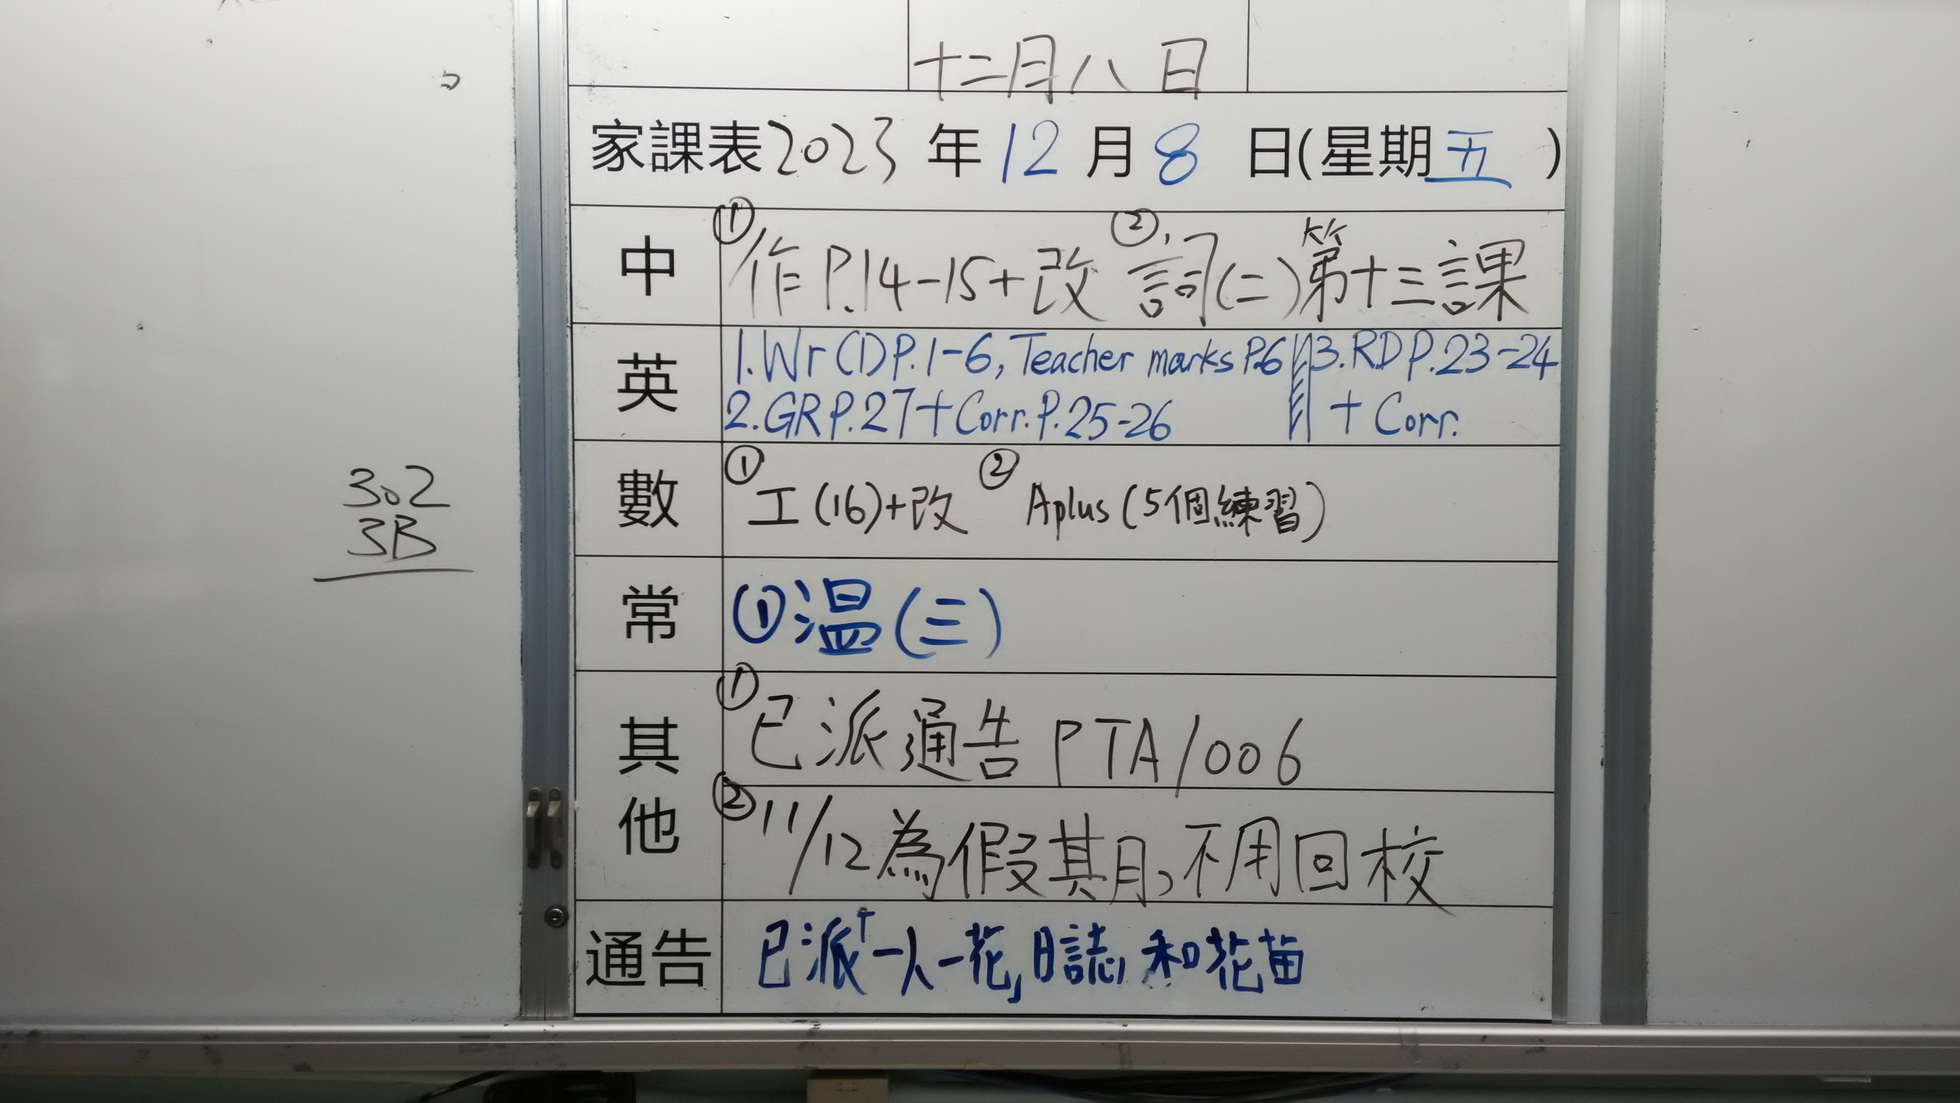 十二月八日
家課表2023年12月8日(星期五)
中 ①作P.14-15+改 ②詞(二)第十三課
英 1.Wr(1)P.1-6, Teacher marks P.6 3.RD P.23-24
2.GR P.27+Corr. P.25-26 + Corr.
數 ①工(16)+改 ②Aplus(5個練習)
常 ①溫(三)
其他 ①已派通告PTA/006
②11/12為假期,不用回校
通告 已派「一人一花」日誌和花苗
302
3B